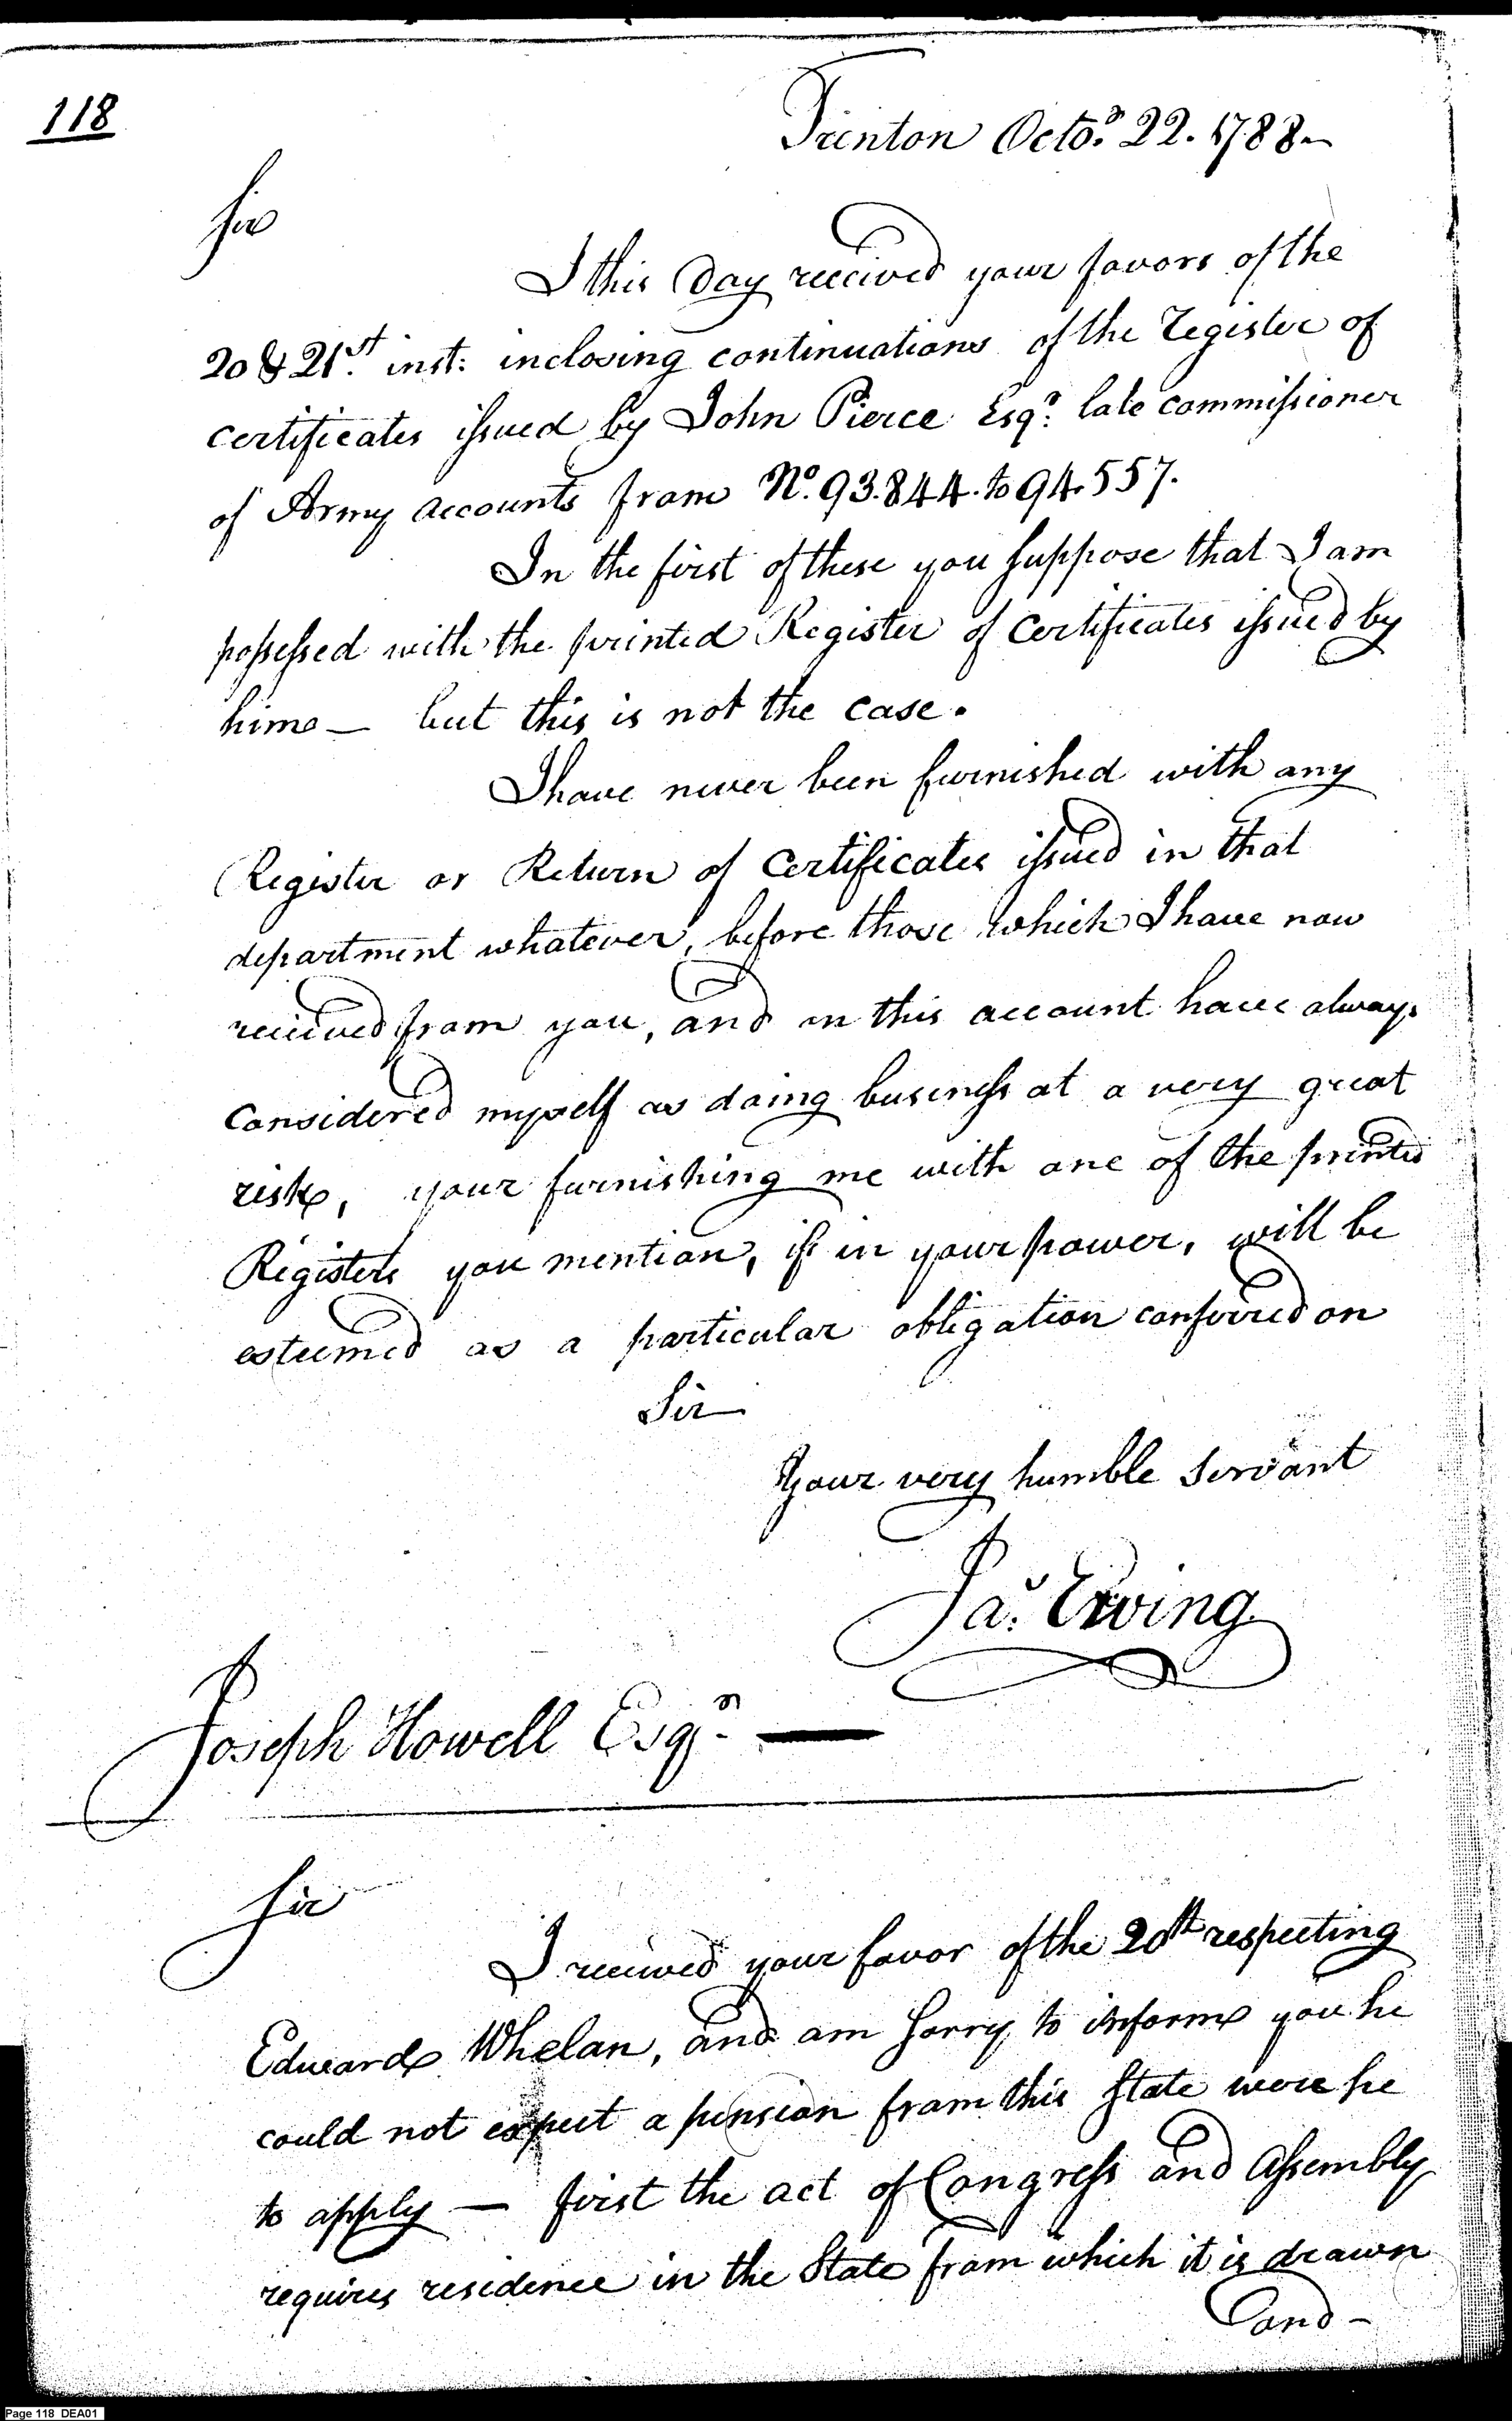 118
Trenton Octor. 22. 1788-
Sir
I this Day received your favors of the
20 & 21st. inst: inclosing continuations of the Register of
certificates issued by John Pierce Esqr. late commissioner
of Army accounts from No. 93.844. to 94.557.
In the first of these you suppose that I am
possessed with the printed Register of Certificates issued by
him — but this is not the case.
I have never been furnished with any
Register or Return of Certificates issued in that
department whatever, before those which I have now
received from you, and on this account have always
Considered myself as doing business at a very great
risk, your furnishing me with one of the printed
Registers you mention, if in your power, will be
esteemed as a particular obligation conferred on
Sir
Your very humble Servant
Jas. Ewing
Joseph Howell Esqr. —
Sir
I received your favor of the 20th respecting
Edward Whelan, and am sorry to inform you he
could not expect a pension from this State were he
to apply — first the act of Congress and Assembly
requires residence in the State from which it is drawn
and -
Page 118 DEA01